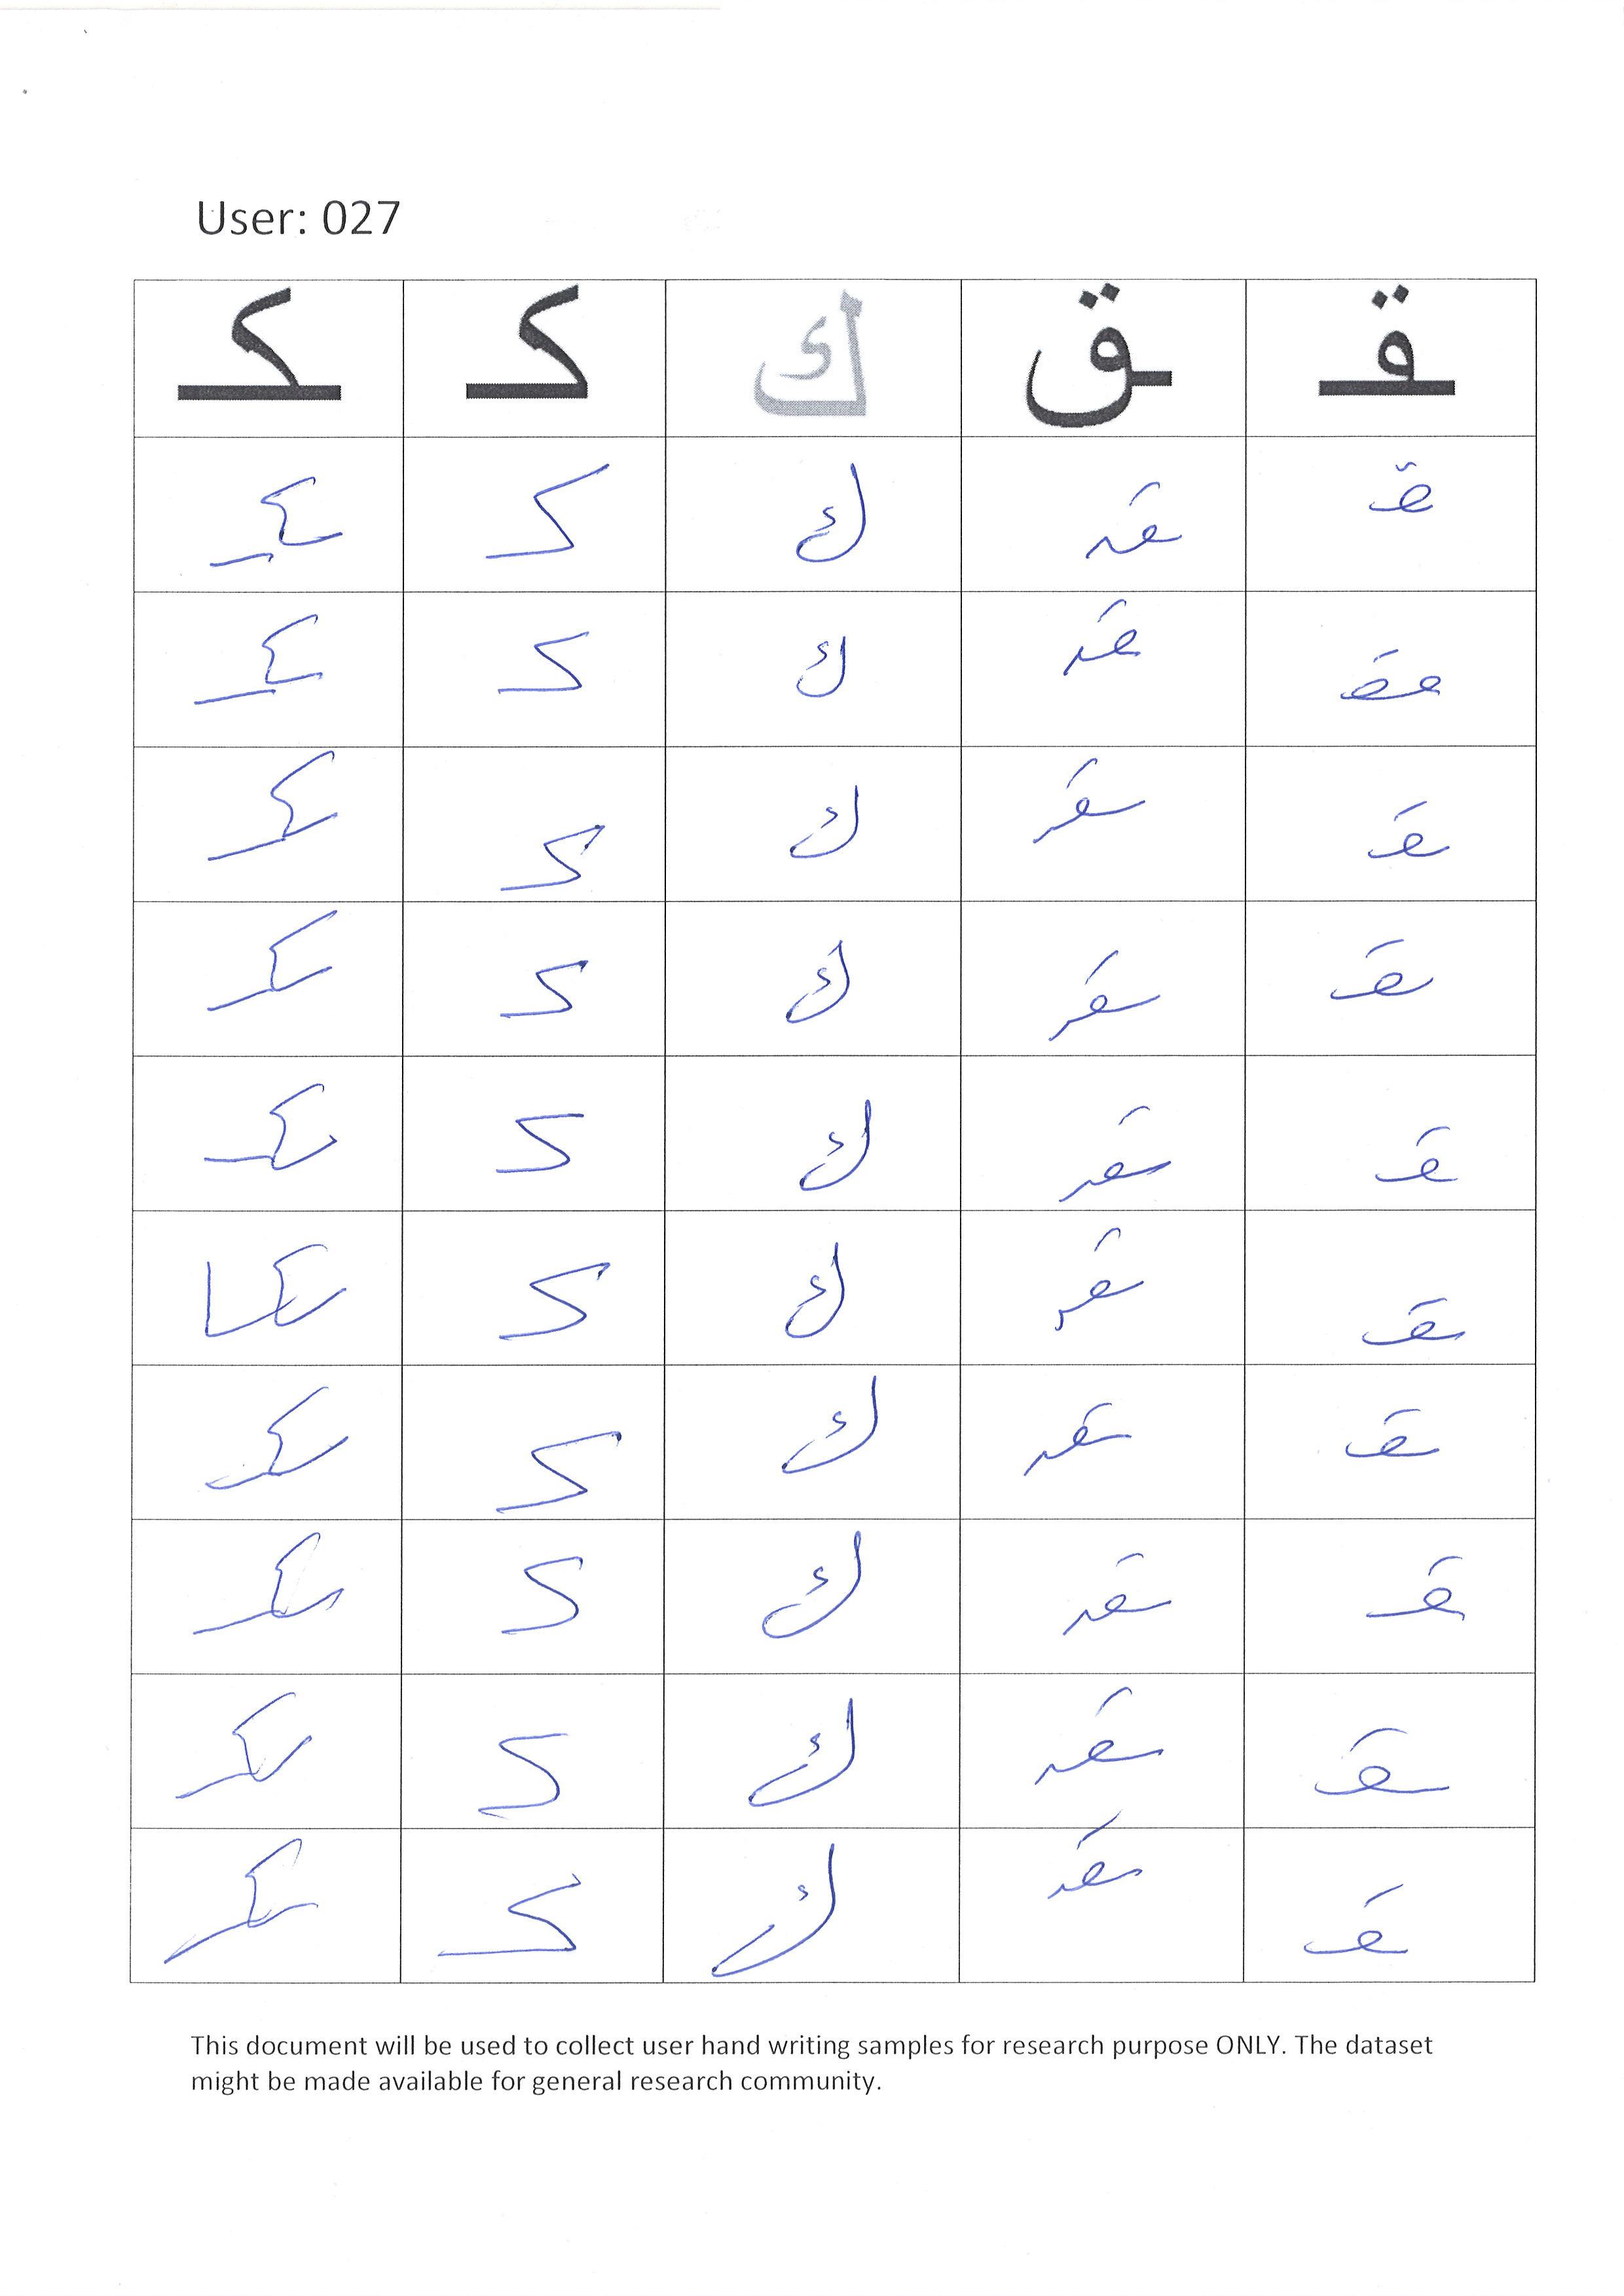 User: 027
ـقـ ـق ك كـ ـكـ
ـقـ ـق ك كـ ـكـ
ـقـ ـق ك كـ ـكـ
ـقـ ـق ك كـ ـكـ
ـقـ ـق ك كـ ـكـ
ـقـ ـق ك كـ ـكـ
ـقـ ـق ك كـ ـكـ
ـقـ ـق ك كـ ـكـ
ـقـ ـق ك كـ ـكـ
ـقـ ـق ك كـ ـكـ
ـقـ ـق ك كـ ـكـ
This document will be used to collect user hand writing samples for research purpose ONLY. The dataset
might be made available for general research community.